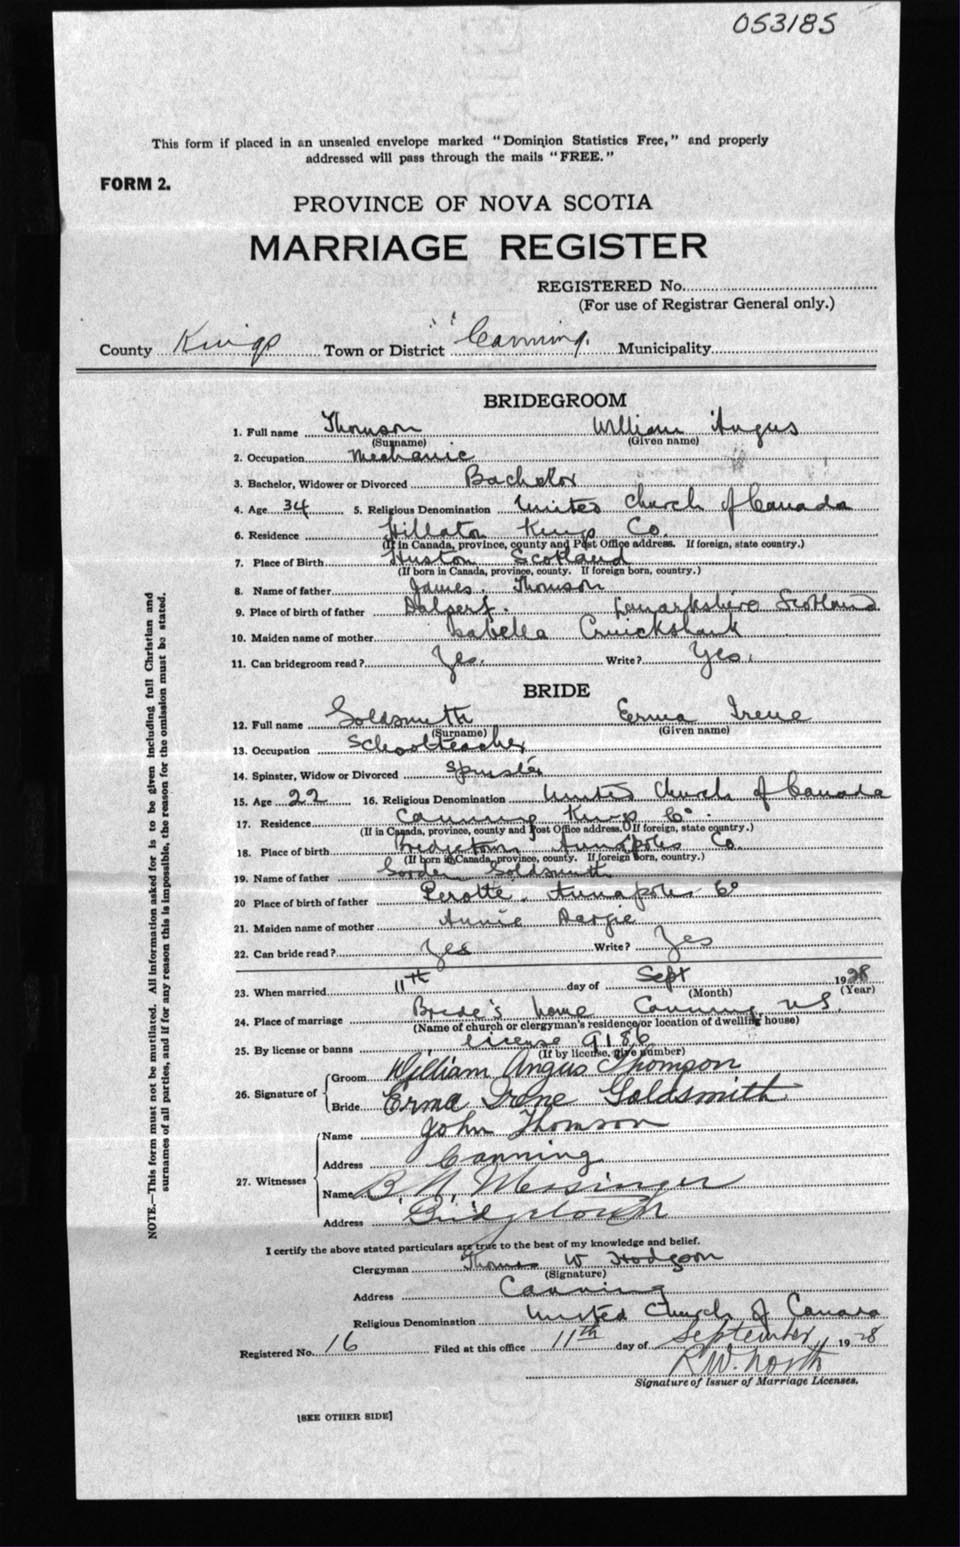 053185
This form if placed in an unsealed envelope marked "Dominion Statistics Free," and properly
addressed will pass through the mails "FREE."
FORM 2.
PROVINCE OF NOVA SCOTIA
MARRIAGE REGISTER
REGISTERED No.
(For use of Registrar General only.)
County Kings Town or District Canning. Municipality
BRIDEGROOM
1. Full name Thomson William Angus
(Surname) (Given name)
2. Occupation Mechanic
3. Bachelor, Widower or Divorced Bachelor
4. Age 34 5. Religious Denomination United Church of Canada
6. Residence Hillaton Kings Co.
(If in Canada, province, county and Post Office address. If foreign, state country.)
7. Place of Birth Scotland
(If born in Canada, province, county. If foreign born, country.)
8. Name of father James. Thomson
9. Place of birth of father Lanarkshire Scotland
10. Maiden name of mother Isabella Cruickshank
11. Can bridegroom read? Yes. Write? Yes.
BRIDE
12. Full name Goldsmith Erma Irene
(Surname) (Given name)
13. Occupation Schoolteacher
14. Spinster, Widow or Divorced Spinster
15. Age 22 16. Religious Denomination United Church of Canada
17. Residence Canning Kings Co.
(If in Canada, province, county and Post Office address. If foreign, state country.)
18. Place of birth Bridgetown Annapolis Co.
(If born in Canada, province, county. If foreign born, country.)
19. Name of father Gorden Goldsmith
20 Place of birth of father Perotte. Annapolis Co
21. Maiden name of mother Annie Dargie
22. Can bride read? Yes Write? Yes
23. When married 11th day of Sept 1928
(Month) (Year)
24. Place of marriage Bride's home Canning N.S.
(Name of church or clergyman's residence/or location of dwelling house)
25. By license or banns License 9186
(If by license, give number)
26. Signature of Groom William Angus Thomson
Bride Erma Irene Goldsmith
27. Witnesses Name John Thomson
Address Canning
Name B. N. Messinger
Address Bridgetown
I certify the above stated particulars are true to the best of my knowledge and belief.
Clergyman Thomas W Hodgson
(Signature)
Address Canning
Religious Denomination United Church of Canada
Registered No. 16 Filed at this office 11th day of September 1928
R.W. North
Signature of Issuer of Marriage Licenses.
[SEE OTHER SIDE]
NOTE.—This form must not be mutilated. All information asked for is to be given including full Christian and
surnames of all parties, and if for any reason this is impossible, the reason for the omission must be stated.